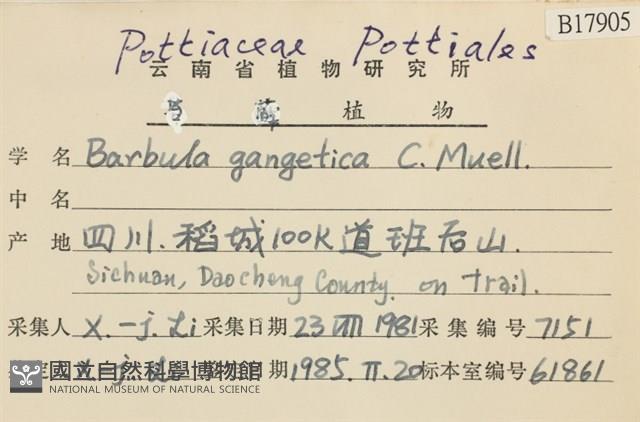 B17905
Pottiaceae Pottiales
云南省植物研究所
苔藓植物
学名 Barbula gangetica C. Muell.
中名
产地 四川.稻城100K道班后山.
Sichuan, Daocheng County. on trail.
采集人 X.-j. Li 采集日期 23 VIII 1981 采集编号 7151
定 X.-j. Li 日期 1985. II. 20 标本室编号 61861
國立自然科學博物館
NATIONAL MUSEUM OF NATURAL SCIENCE